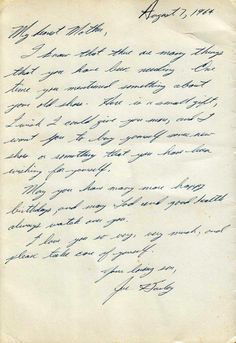 August 7, 1964
My dearest Mother,
I know that there are many things
that you have been needing. One
time you mentioned something about
your old shoes. Here is a small gift,
I wish I could give you more, and I
want you to buy yourself some new
shoes or something that you have been
wishing for yourself.
May you have many more happy
birthdays, and may God and good health
always watch over you.
I love you so very, very much, and
please take care of yourself.
Your loving son,
Joe